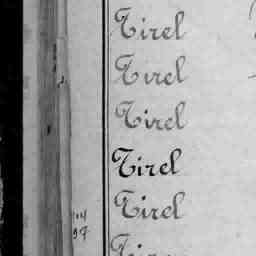 Tirel
Tirel
Tirel
Tirel
Tirel